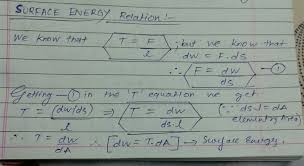 SURFACE ENERGY Relation:-
We know that T = F/l ; but we know that
dw = F.ds
∴ F = dw/ds — ①
Getting — ① in the 'T' equation we get.
T = (dw/ds)/l ⇒ T = dw/ds.l (∵ ds.l = dA elementary Area)
∴ T = dw/dA ∴ [dw = T.dA] → Surface Energy.